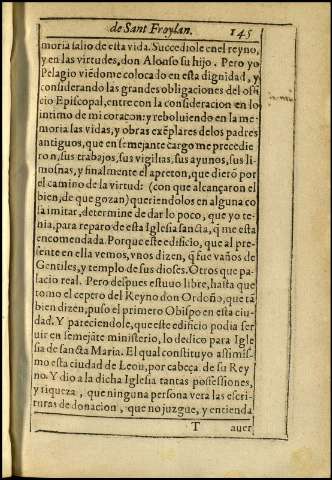 de Sant Froylan. 145
moria salio de esta vida. Succediole en el reyno,
y en las virtudes, don Alonso su hijo. Pero yo
Pelagio viẽdome colocado en esta dignidad, y
considerando las grandes obligaciones del offi
cio Episcopal, entre con la consideracion en lo
intimo de mi coraçon: y reboluiendo en la me-
moria las vidas, y obras exẽplares delos padres
antiguos, que en semejante cargo me precedie
ron, sus trabajos, sus vigilias, sus ayunos, sus li-
mosnas, y finalmente el apreton, que dierõ por
el camino de la virtud: (con que alcançaron el
bien, de que gozan) queriendolos en alguna co
sa imitar, determine de dar lo poco, que yo te-
nia, para reparo de esta Iglesia sancta, q̃ me esta
encomendada. Porque este edificio, que al pre-
sente en ella vemos, vnos dizen, q̃ fue vaños de
Gentiles, y templo de sus dioses. Otros que pa-
lacio real. Pero despues estuuo libre, hasta que
tomo el ceptro del Reyno don Ordoño, que tã
bien dizen, puso el primero Obispo en esta ciu-
dad. Y pareciendole, que este edificio podia ser
uir en semejãte ministerio, lo dedico para Igle
sia de sancta Maria. El qual constituyo assimis-
mo esta ciudad de Leon, por cabeça de su Rey
no. Y dio a la dicha Iglesia tantas possessiones,
y riqueza, que ninguna persona vera las escri-
turas de donacion, que no juzgue, y entienda
T auer